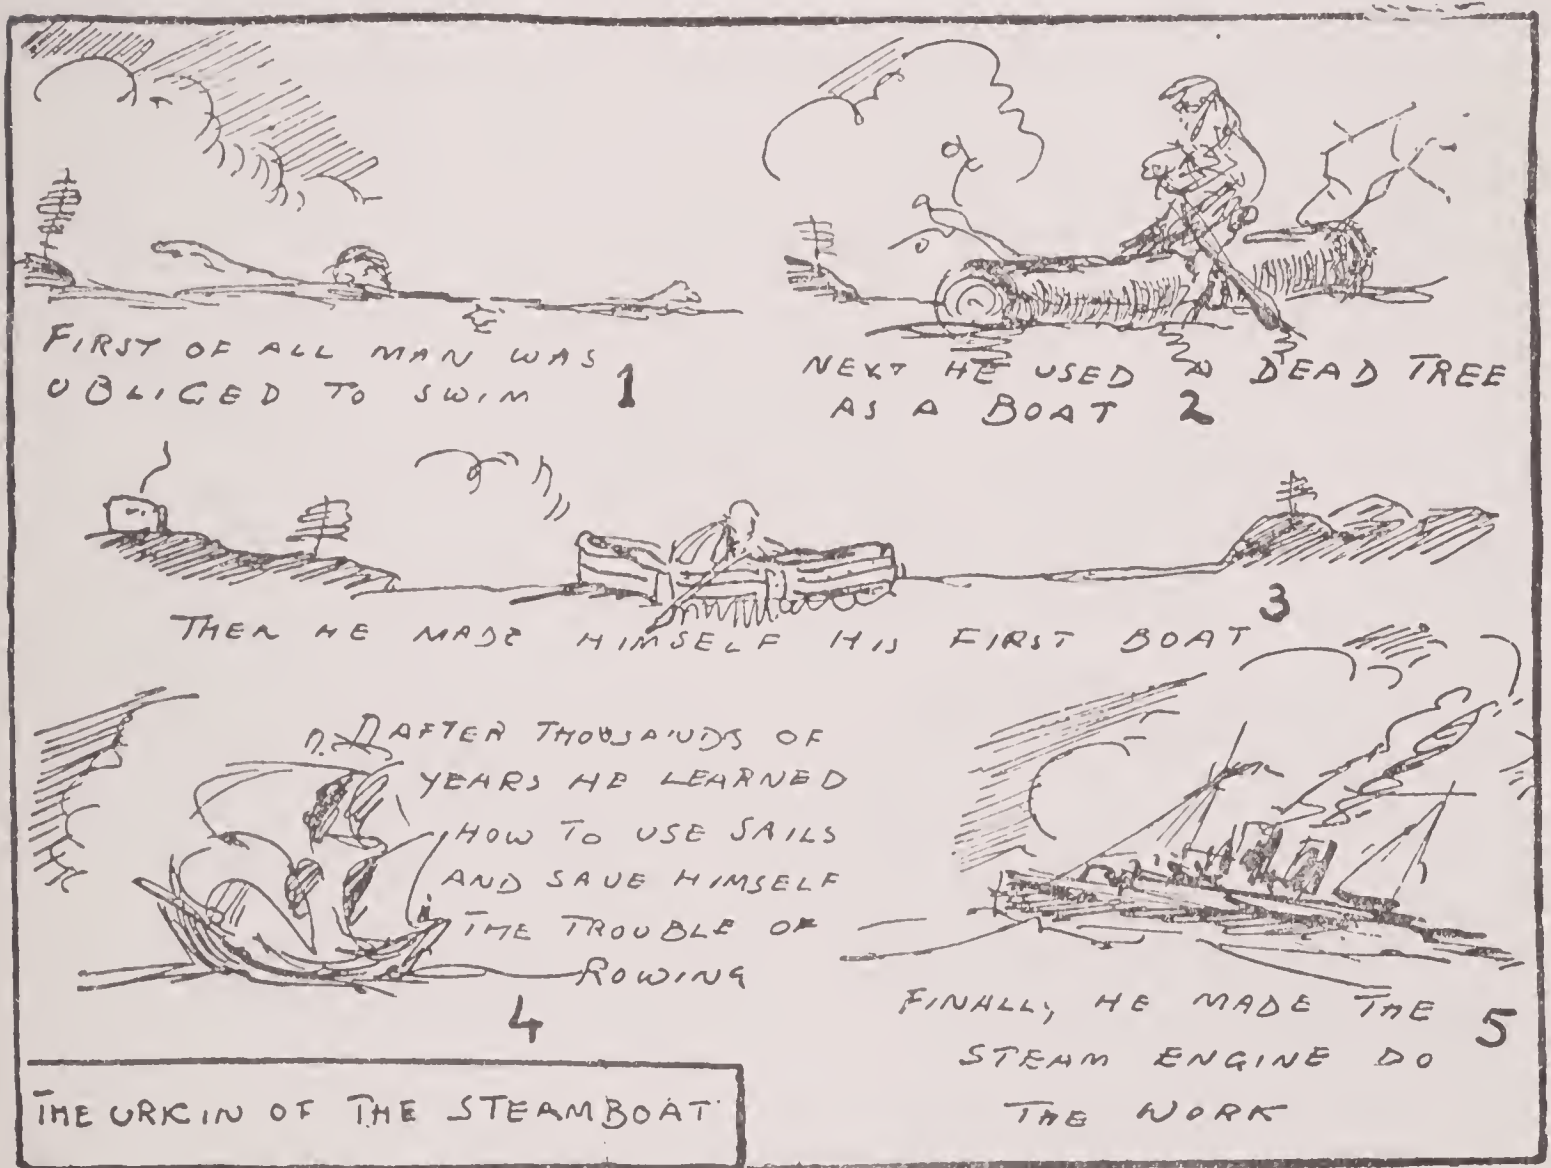 FIRST OF ALL MAN WAS
OBLIGED TO SWIM 1
NEXT HE USED A DEAD TREE
AS A BOAT 2
THEN HE MADE HIMSELF HIS FIRST BOAT 3
AFTER THOUSANDS OF
YEARS HE LEARNED
HOW TO USE SAILS
AND SAVE HIMSELF
THE TROUBLE OF
ROWING
4
FINALLY, HE MADE THE 5
STEAM ENGINE DO
THE WORK
THE ORIGIN OF THE STEAMBOAT